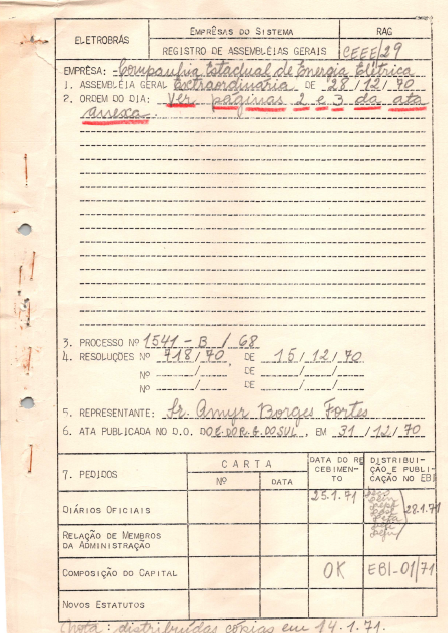 ELETROBRÁS
EMPRÊSAS DO SISTEMA
RAG
REGISTRO DE ASSEMBLÉIAS GERAIS
CEEE/29
EMPRÊSA: Companhia Estadual de Energia Elétrica
1. ASSEMBLÉIA GERAL Extraordinária DE 28/12/70
2. ORDEM DO DIA: Ver páginas 2 e 3 da ata
anexa.
3. PROCESSO Nº 1541-B / 68
4. RESOLUÇÕES Nº 718/70, DE 15/12/70
Nº / DE / /
Nº / DE / /
5. REPRESENTANTE: Sr. Amyr Borges Fortes
6. ATA PUBLICADA NO D.O. DO E. DO R. G. DO SUL, EM 31/12/70
7. PEDIDOS
CARTA
Nº
DATA
DATA DO RE
CEBIMEN-
TO
DISTRIBUI-
ÇÃO E PUBLI-
CAÇÃO NO EBI
DIÁRIOS OFICIAIS
25.1.71
28.1.71
RELAÇÃO DE MEMBROS
DA ADMINISTRAÇÃO
COMPOSIÇÃO DO CAPITAL
OK
EBI-01/71
NOVOS ESTATUTOS
Nota: distribuídas cópias em 14.1.71.